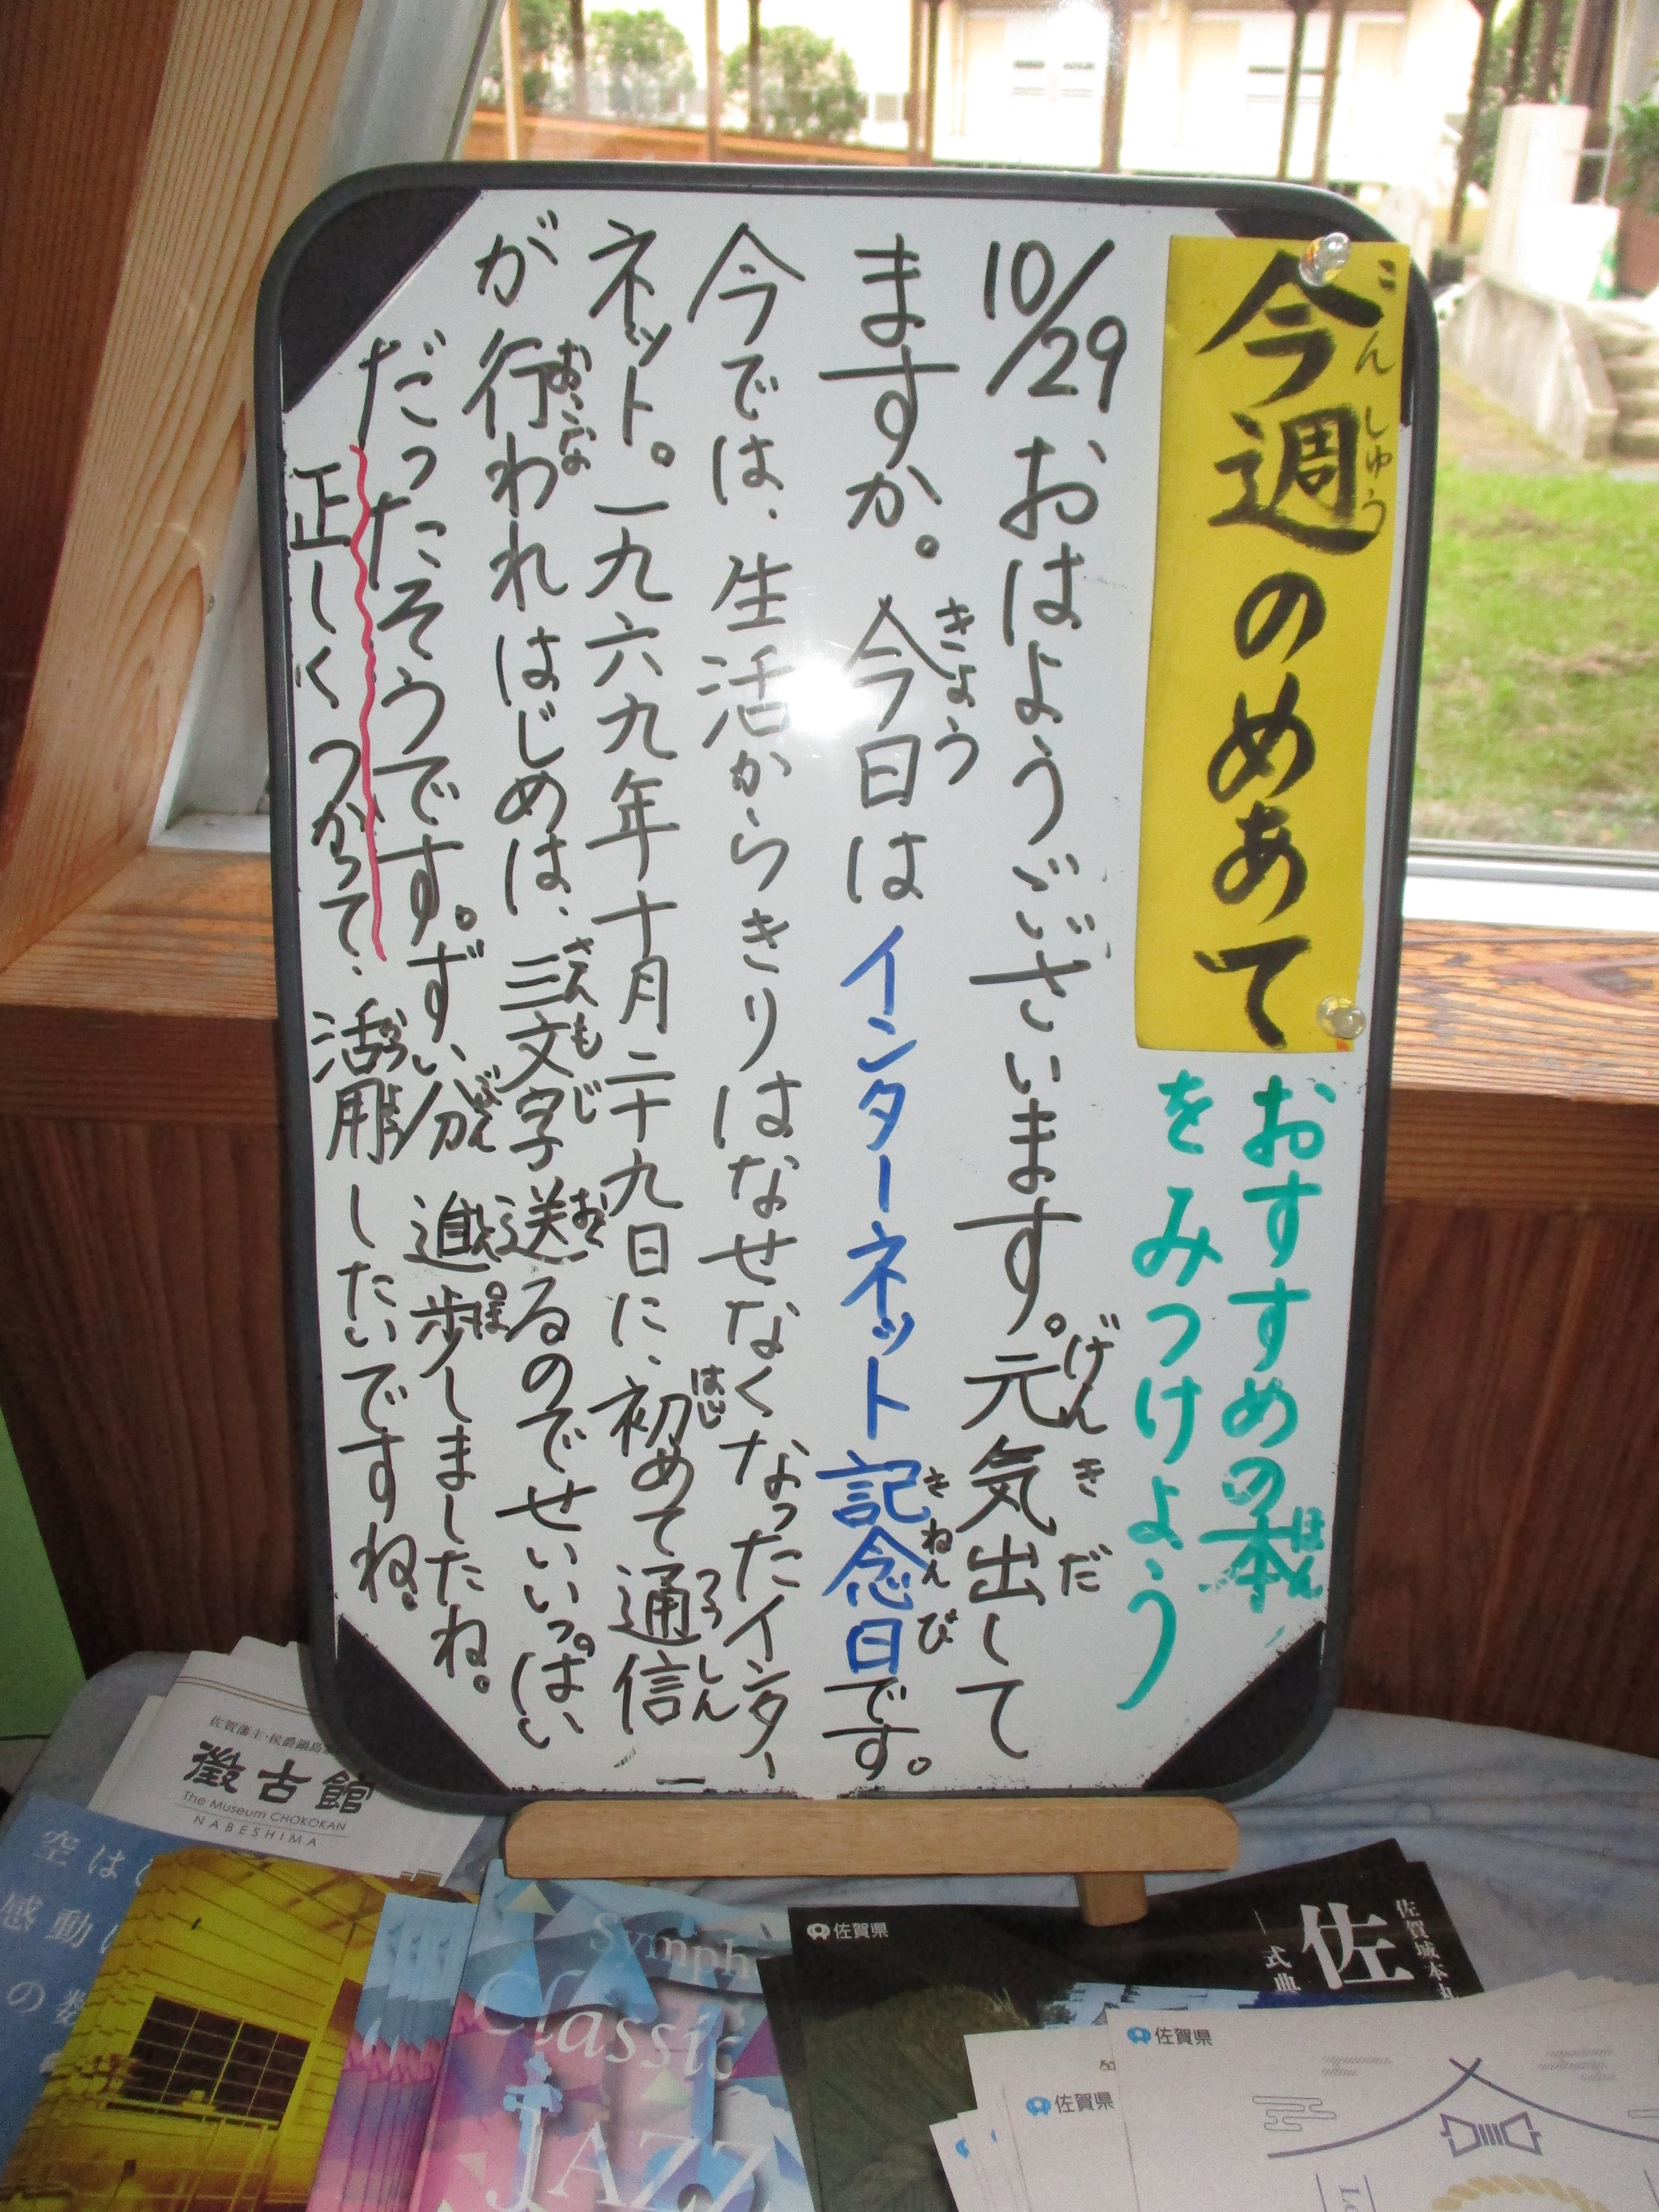 今週のめあて
こんしゅう
おすすめの本
ほん
をみつけよう
10/29 おはようございます。元気出して
げんきだ
ますか。今日はインターネット記念日です。
きょう
きねんび
今では、生活からきりはなせなくなったインター
ネット。一九六九年十月二十九日に、初めて通信
はじ
つうしん
が行われはじめは、三文字送るのでせいいっぱい
おこな
さんもじ
おく
だったそうです。ずい分進歩しましたね。
ぶん
しんぽ
正しくつかって、活用したいですね。
かつよう
佐賀藩主・侯爵鍋島
徴古館
The Museum CHOKOKAN
NABESHIMA
空は
感動
の
Symph
Classic
JAZZ
佐賀県
佐賀城本丸
佐
式典
佐賀県
佐賀県